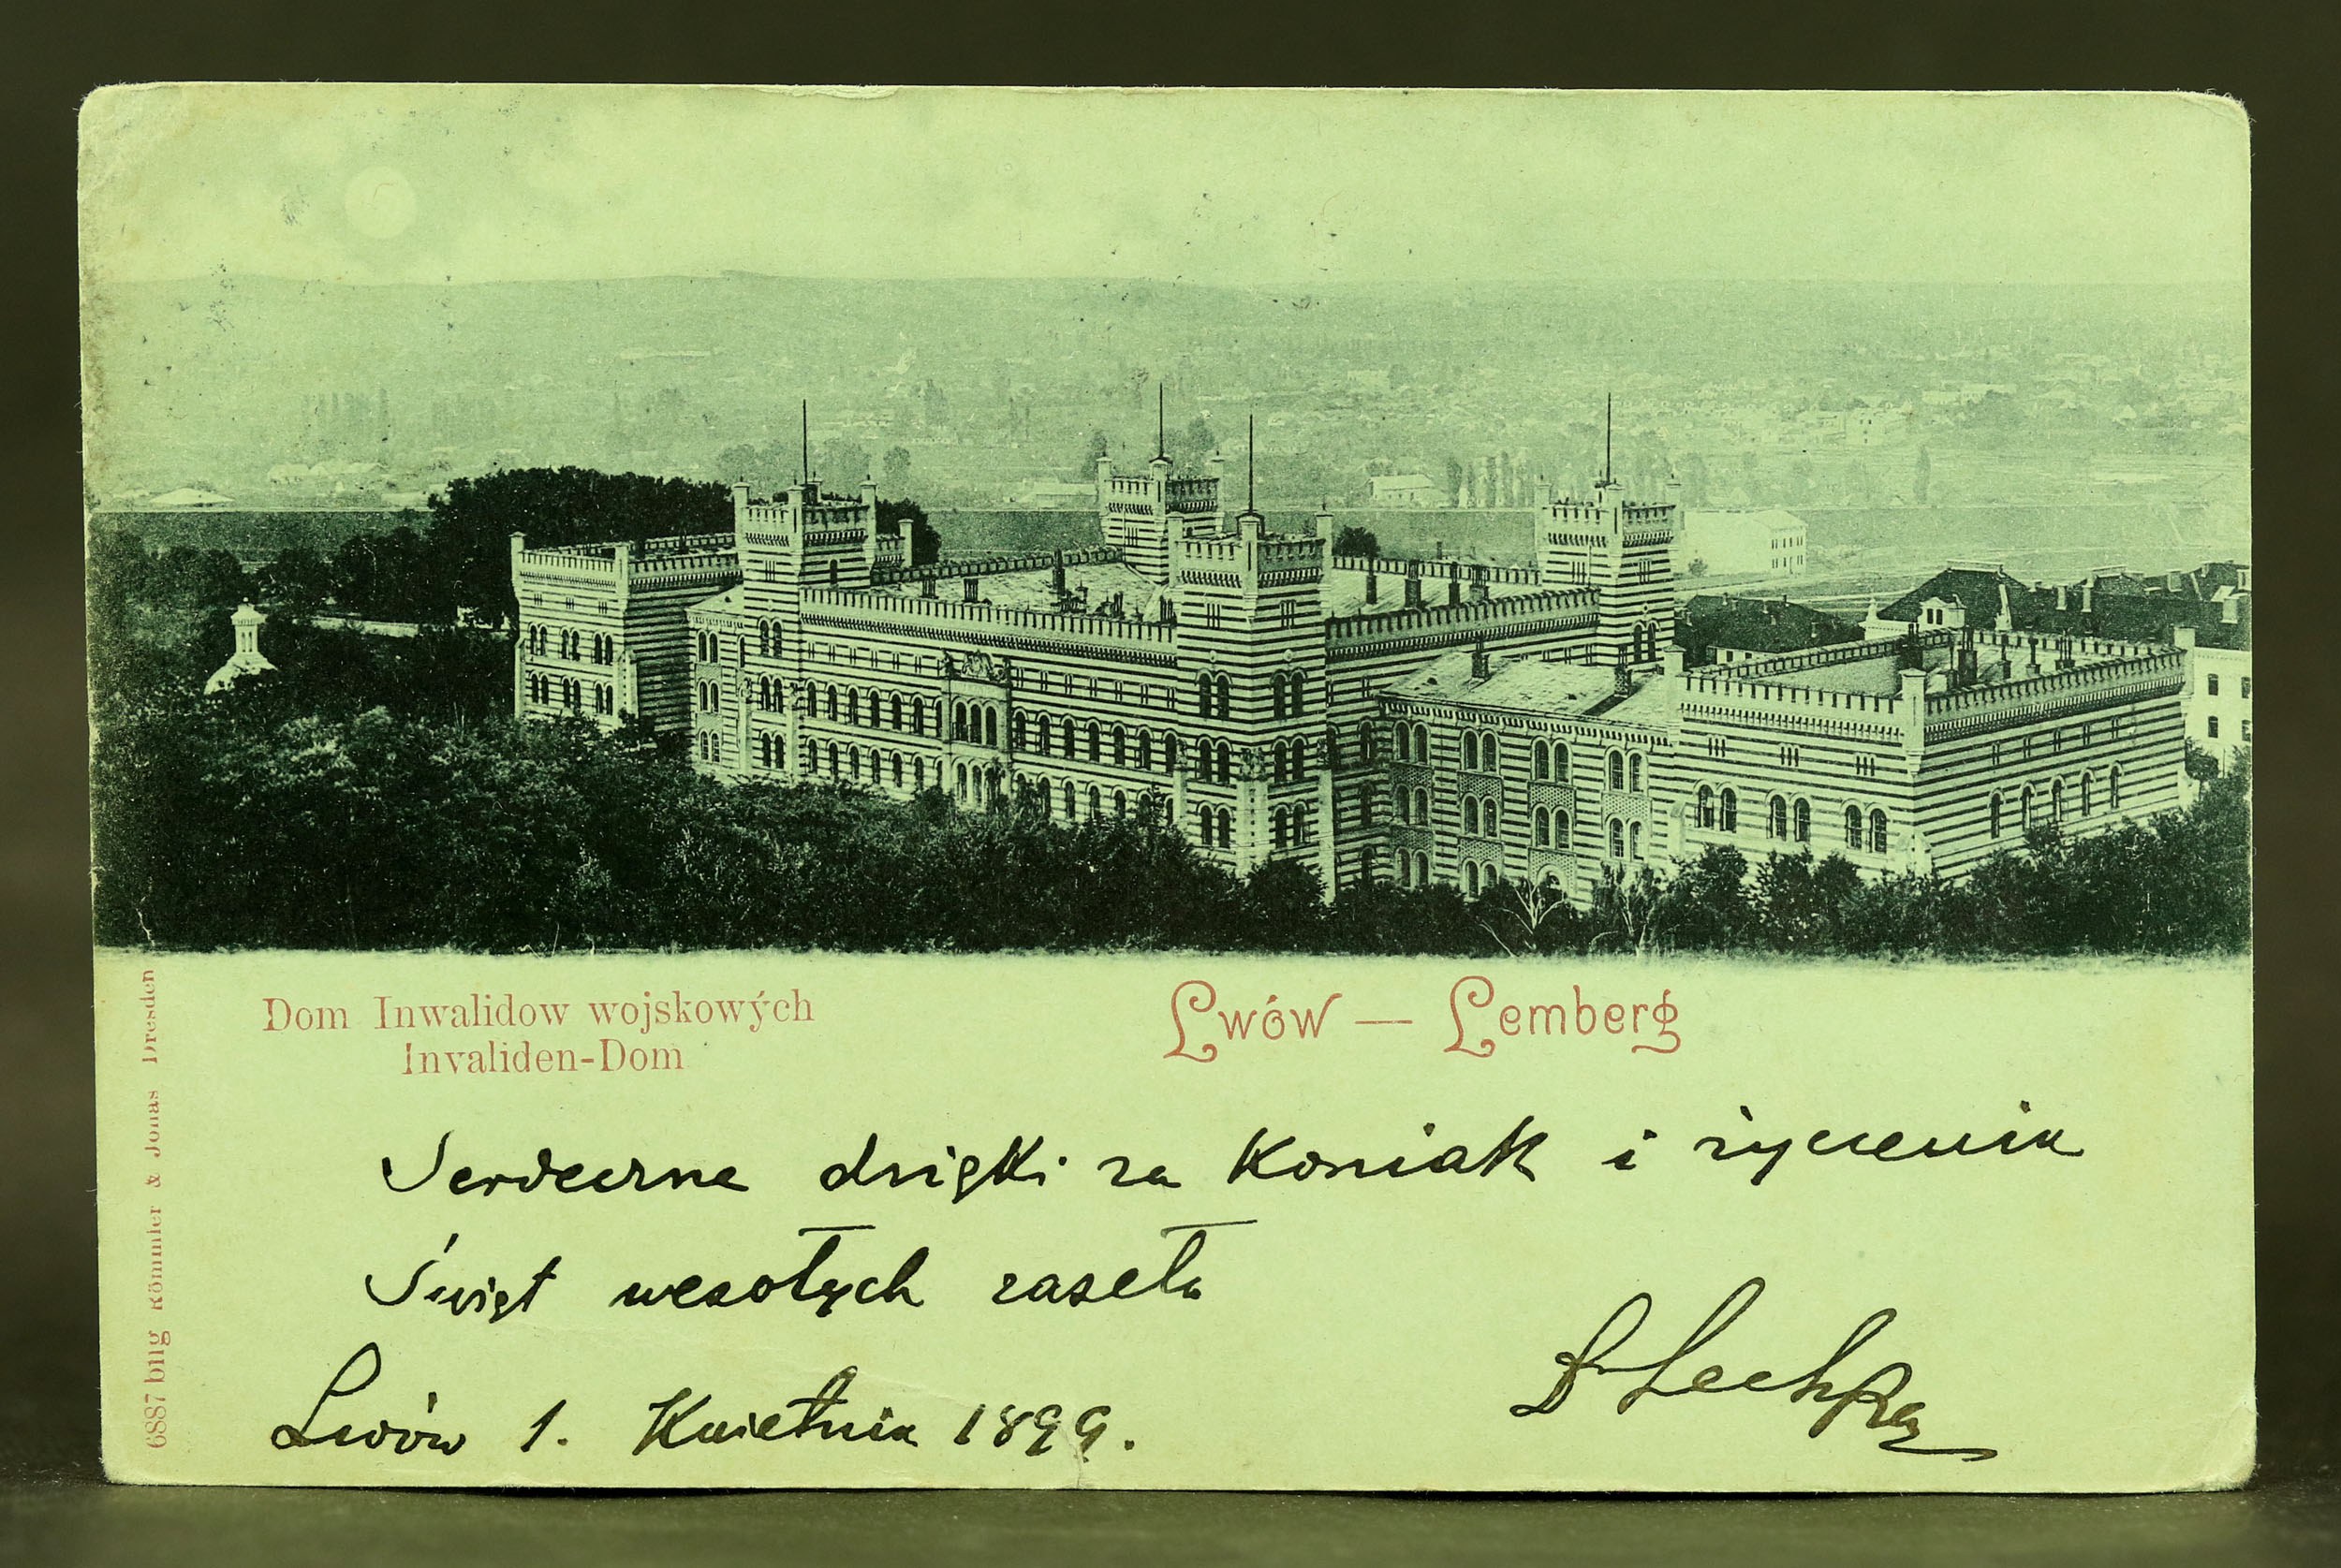 Dom Inwalidow wojskowých
Invaliden-Dom
Lwów — Lemberg
Serdeczne dzięki za Koniak i życzenia
Świąt wesołych zaseła
Lwów 1. Kwietnia 1899.
6887 b11g Römmler & Jonas Dresden